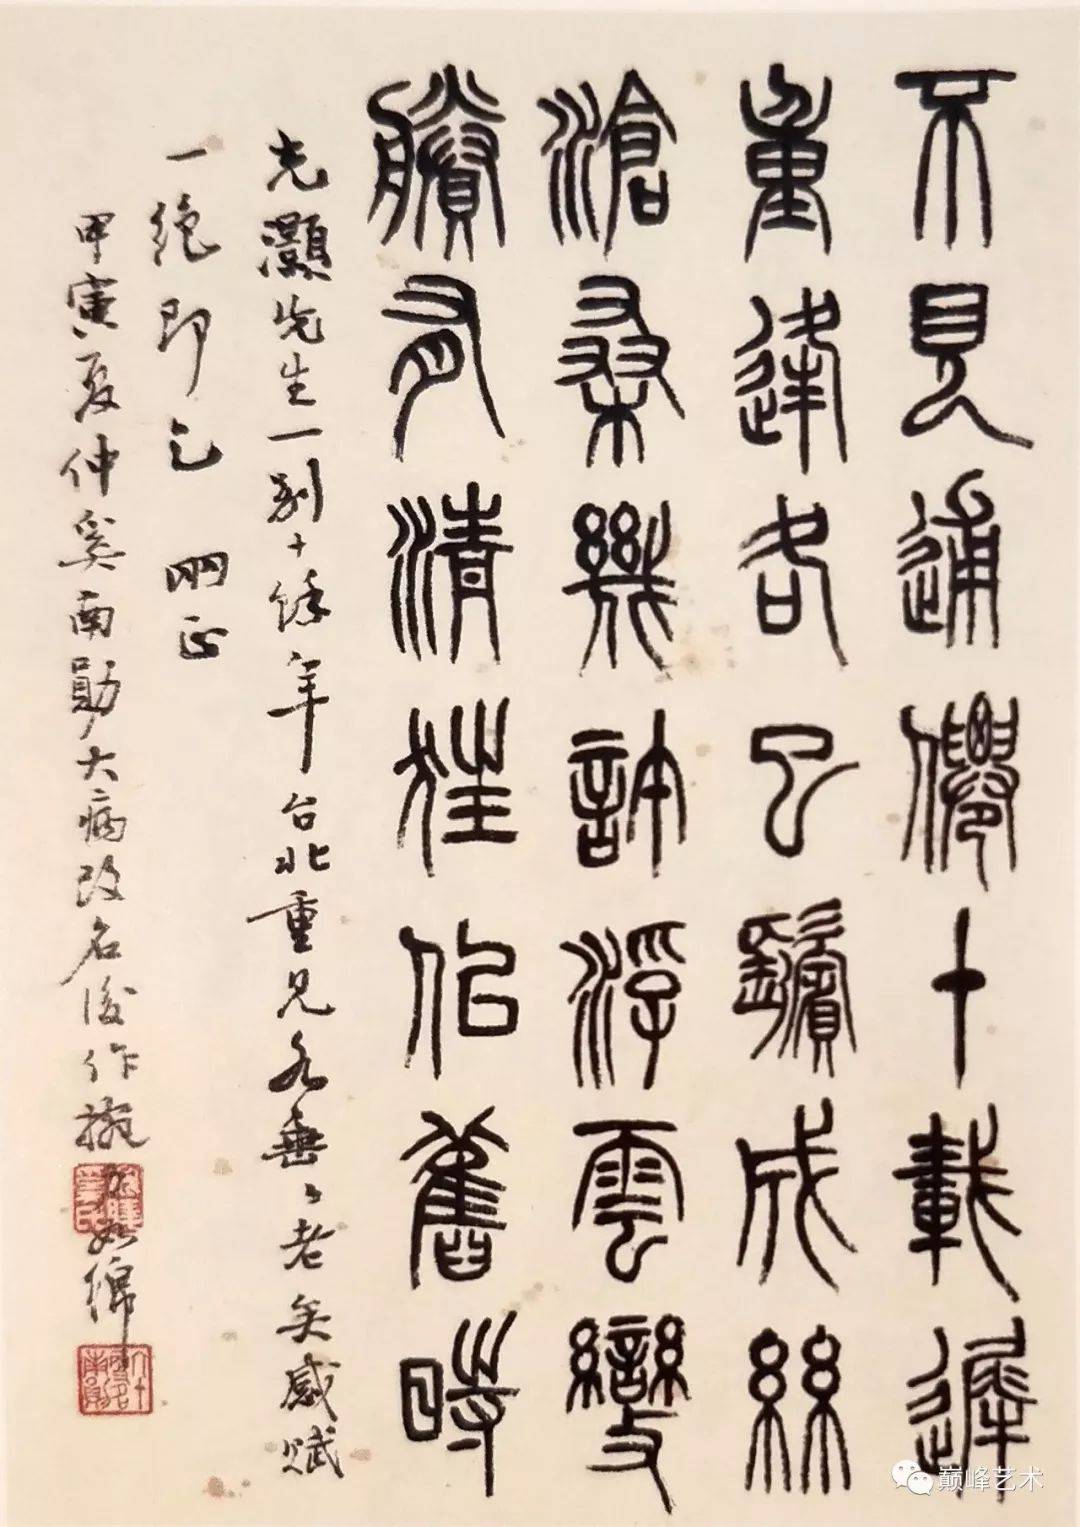 不見逋僊十載遲
重逢各已鬢成絲
滄桑幾許浮雲變
賸有清狂似舊時
光灝先生一别十餘年台北重見各垂〻老矣感賦
一絶即乞 哂正
甲寅夏仲奚南勛大病改名後作捥力如綿
巅峰艺术